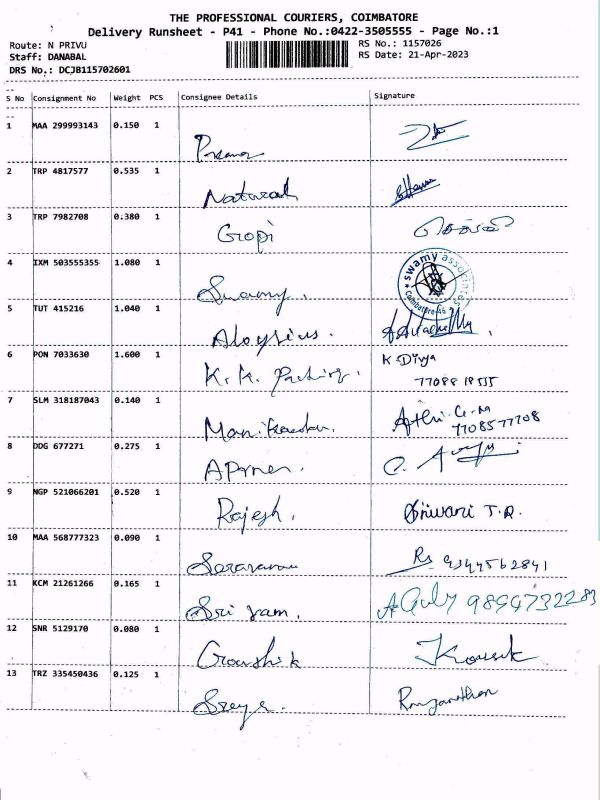 THE PROFESSIONAL COURIERS, COIMBATORE
Delivery Runsheet - P41 - Phone No.:0422-3505555 - Page No.:1
Route: N PRIVU RS No.: 1157026
Staff: DANABAL RS Date: 21-Apr-2023
DRS No.: DCJB115702601
S No Consignment No Weight PCS Consignee Details Signature
1 MAA 299993143 0.150 1
2 TRP 4817577 0.535 1
Nataraj
3 TRP 7982708 0.380 1
Gropi
4 IXM 503555355 1.080 1
Swamy. swamy associates Coimbatore-46
5 TUT 415216 1.040 1
Aloysius.
6 PON 7033630 1.600 1 K Divya
K.K.
7 SLM 318187043 0.140 1
Manikandan. 7708577708
8 DDG 677271 0.275 1
9 NGP 521066201 0.520 1
Rajesh. T.R.
10 MAA 568777323 0.090 1
Saravanan 9344562841
11 KCM 21261266 0.165 1
Sri ram.
12 SNR 5129170 0.080 1
Kousik
13 TRZ 335450436 0.125 1
Ranjanathan